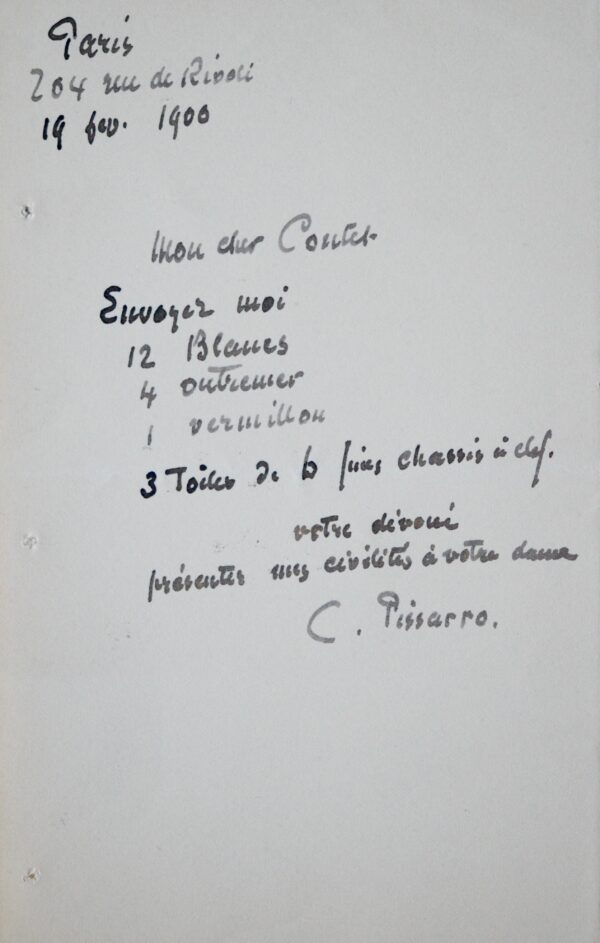 Paris
204 rue de Rivoli
19 fev. 1900
Mon cher Contet
Envoyez moi
12 Blancs
4 outremer
1 vermillon
3 Toiles de 6 fines chassis à clef.
votre dévoué
présenter mes civilités à votre dame
C. Pissarro.